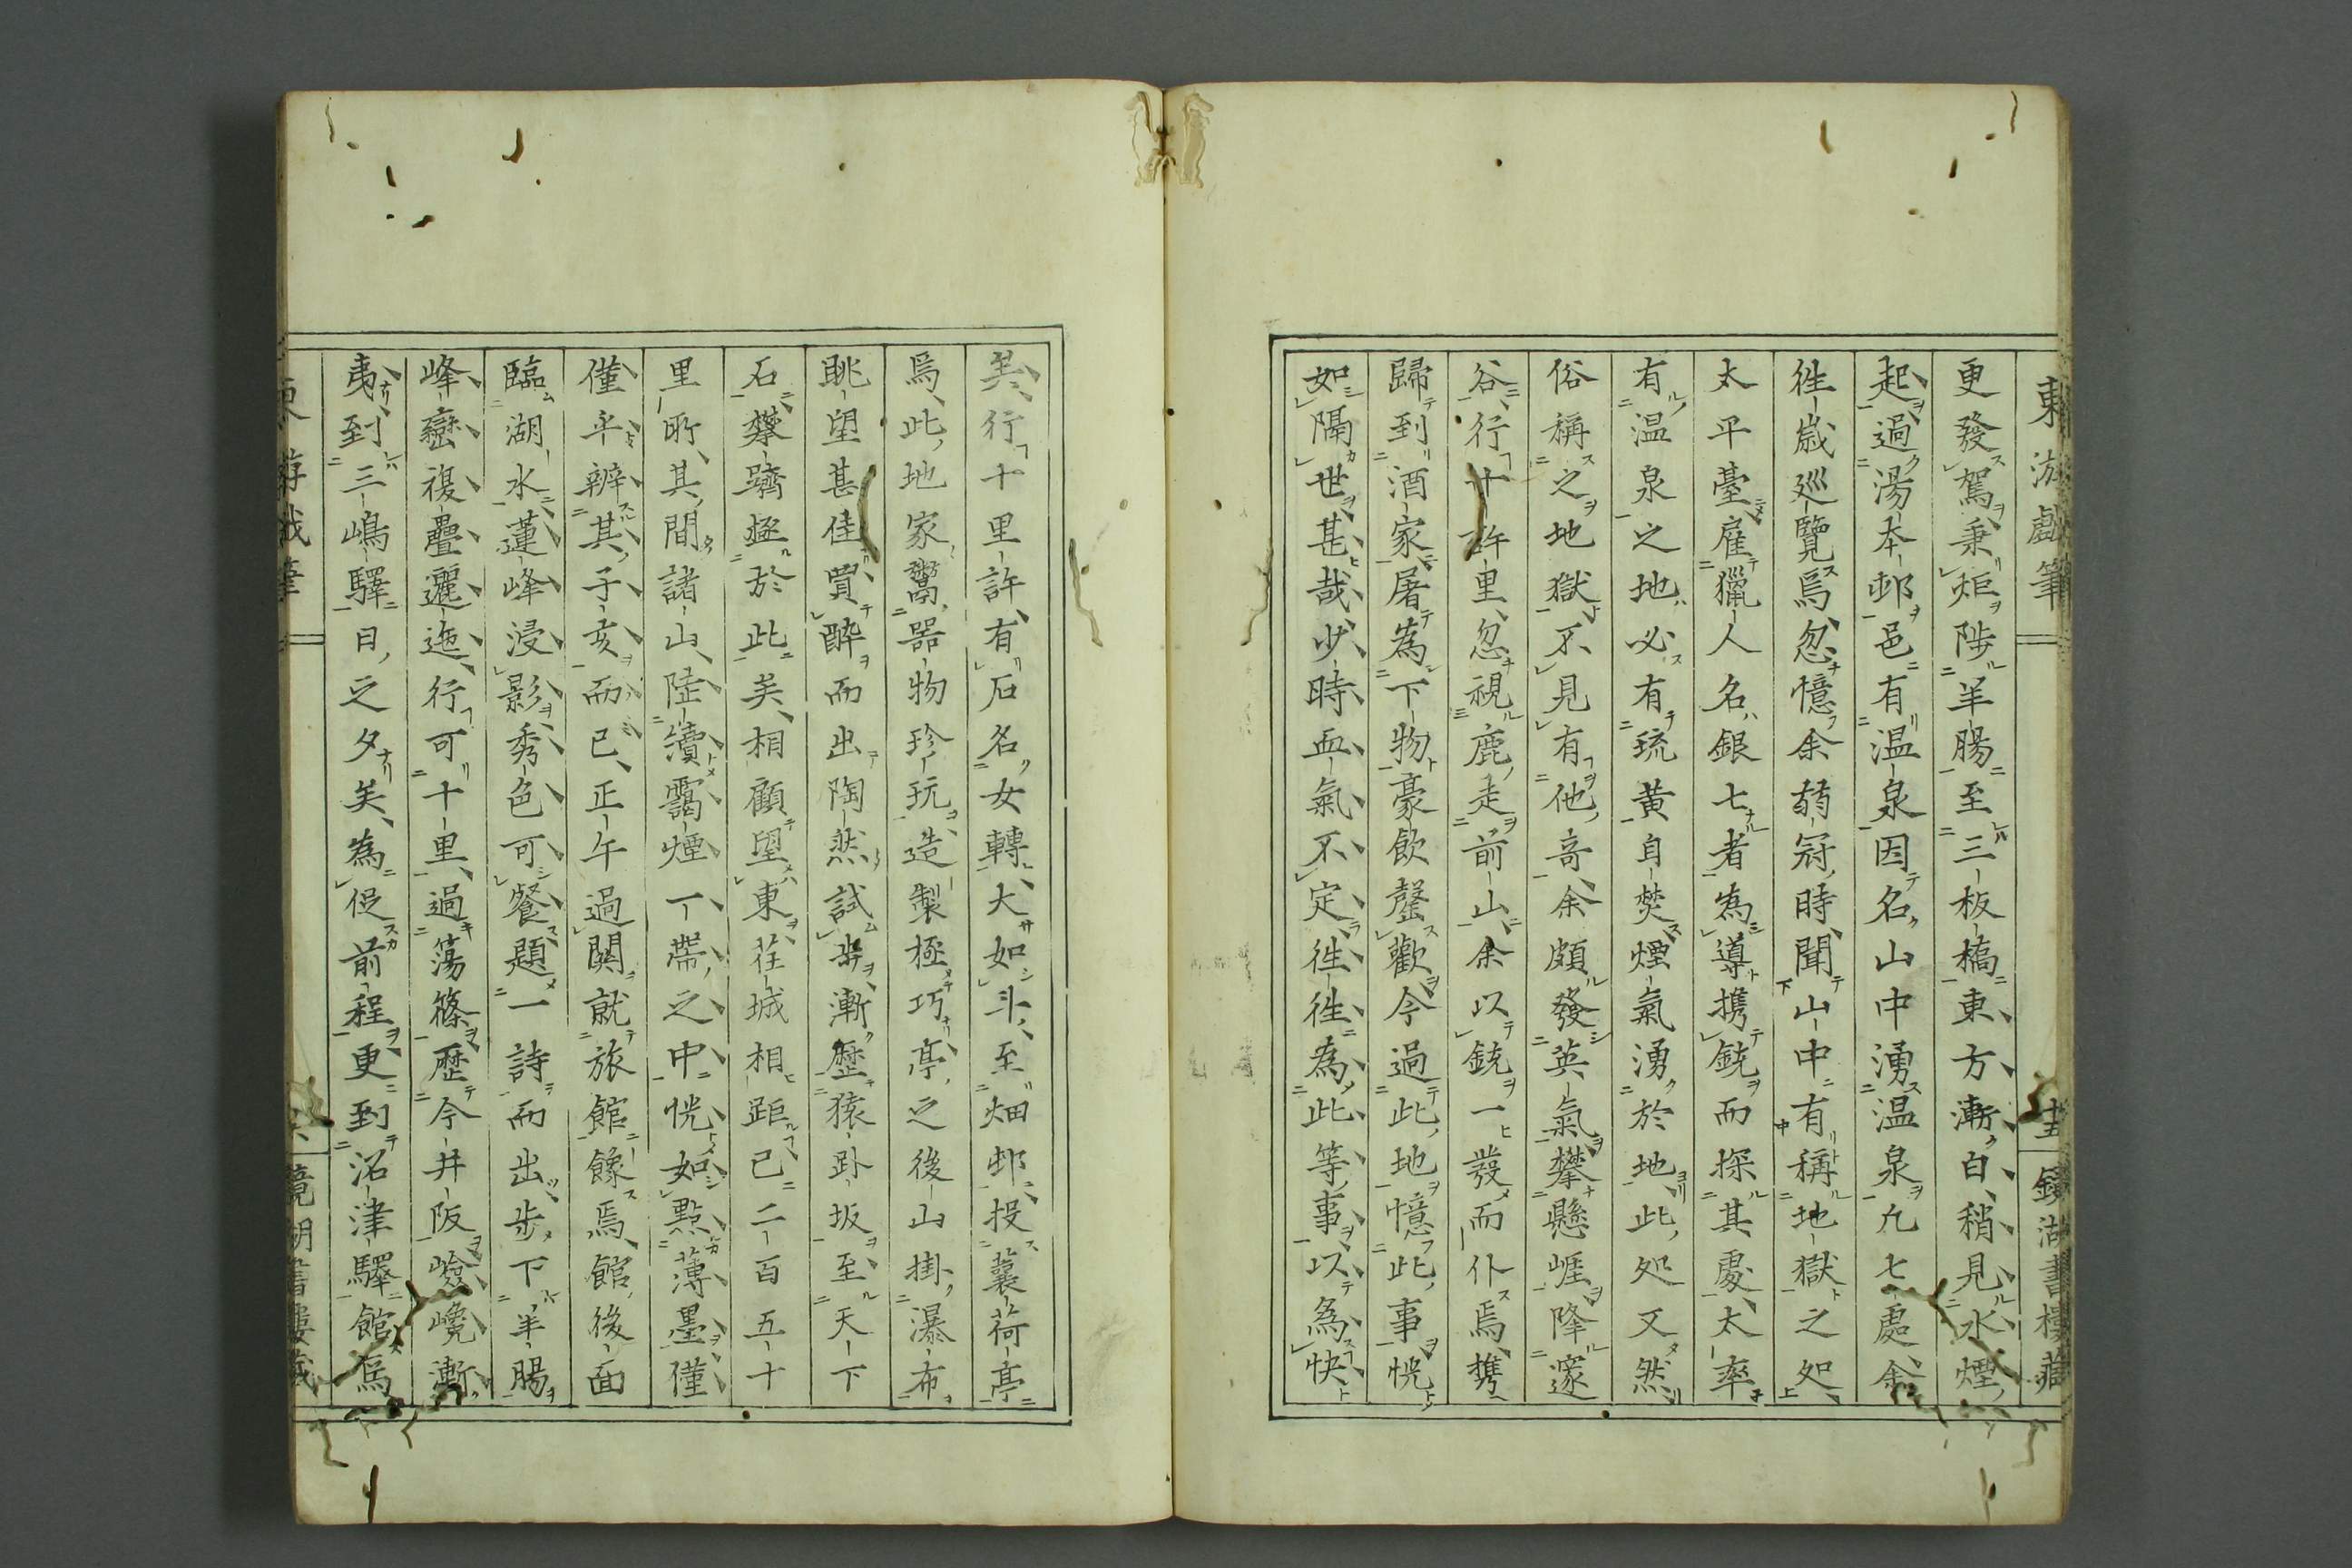 東游戲筆
鏡湖書樓藏
更發駕秉炬陟羊腸至三板橋東方漸白稍見水煙
起過湯本邨邑有温泉因名山中湧温泉九七處余
徃歳廵覽焉忽憶余弱冠時聞山中有稱地獄之処
太平臺雇獵人名銀七者為導携銃而探其處太率
有温泉之地必有琉黄自焚煙氣湧於地此処又然
俗稱之地獄不見有他竒余頗發英氣攀懸崕降邃
谷行十許里忽視鹿走前山余以銃一發而仆焉携
歸到酒家屠為下物豪飲罄歡今過此地憶此事恍
如隔世甚哉少時血氣不定徃徃為此等事以為快
矣行十里許有石名女轉大如斗至畑邨投蓑荷亭
焉此地家鬻器物珍玩造製極巧亭之後山掛瀑布
眺望甚佳買酔而出陶然試歩漸歷猿趴坂至天下
石攀躋極於此矣相顧望東荏城相距已二百五十
里所其間諸山陸續靄煙一帶之中恍如點薄墨僅
僅乎辨其子亥而已正午過關就旅館餯焉館後面
臨湖水蓮峰浸影秀色可餐題一詩而出歩下羊腸
峰巒複疊邐迤行可十里過蕩篠歷今井阪嶮巉漸
夷到三嶋驛日之夕矣為促前程更到沼津驛館焉
東游戲筆
鏡湖書樓藏